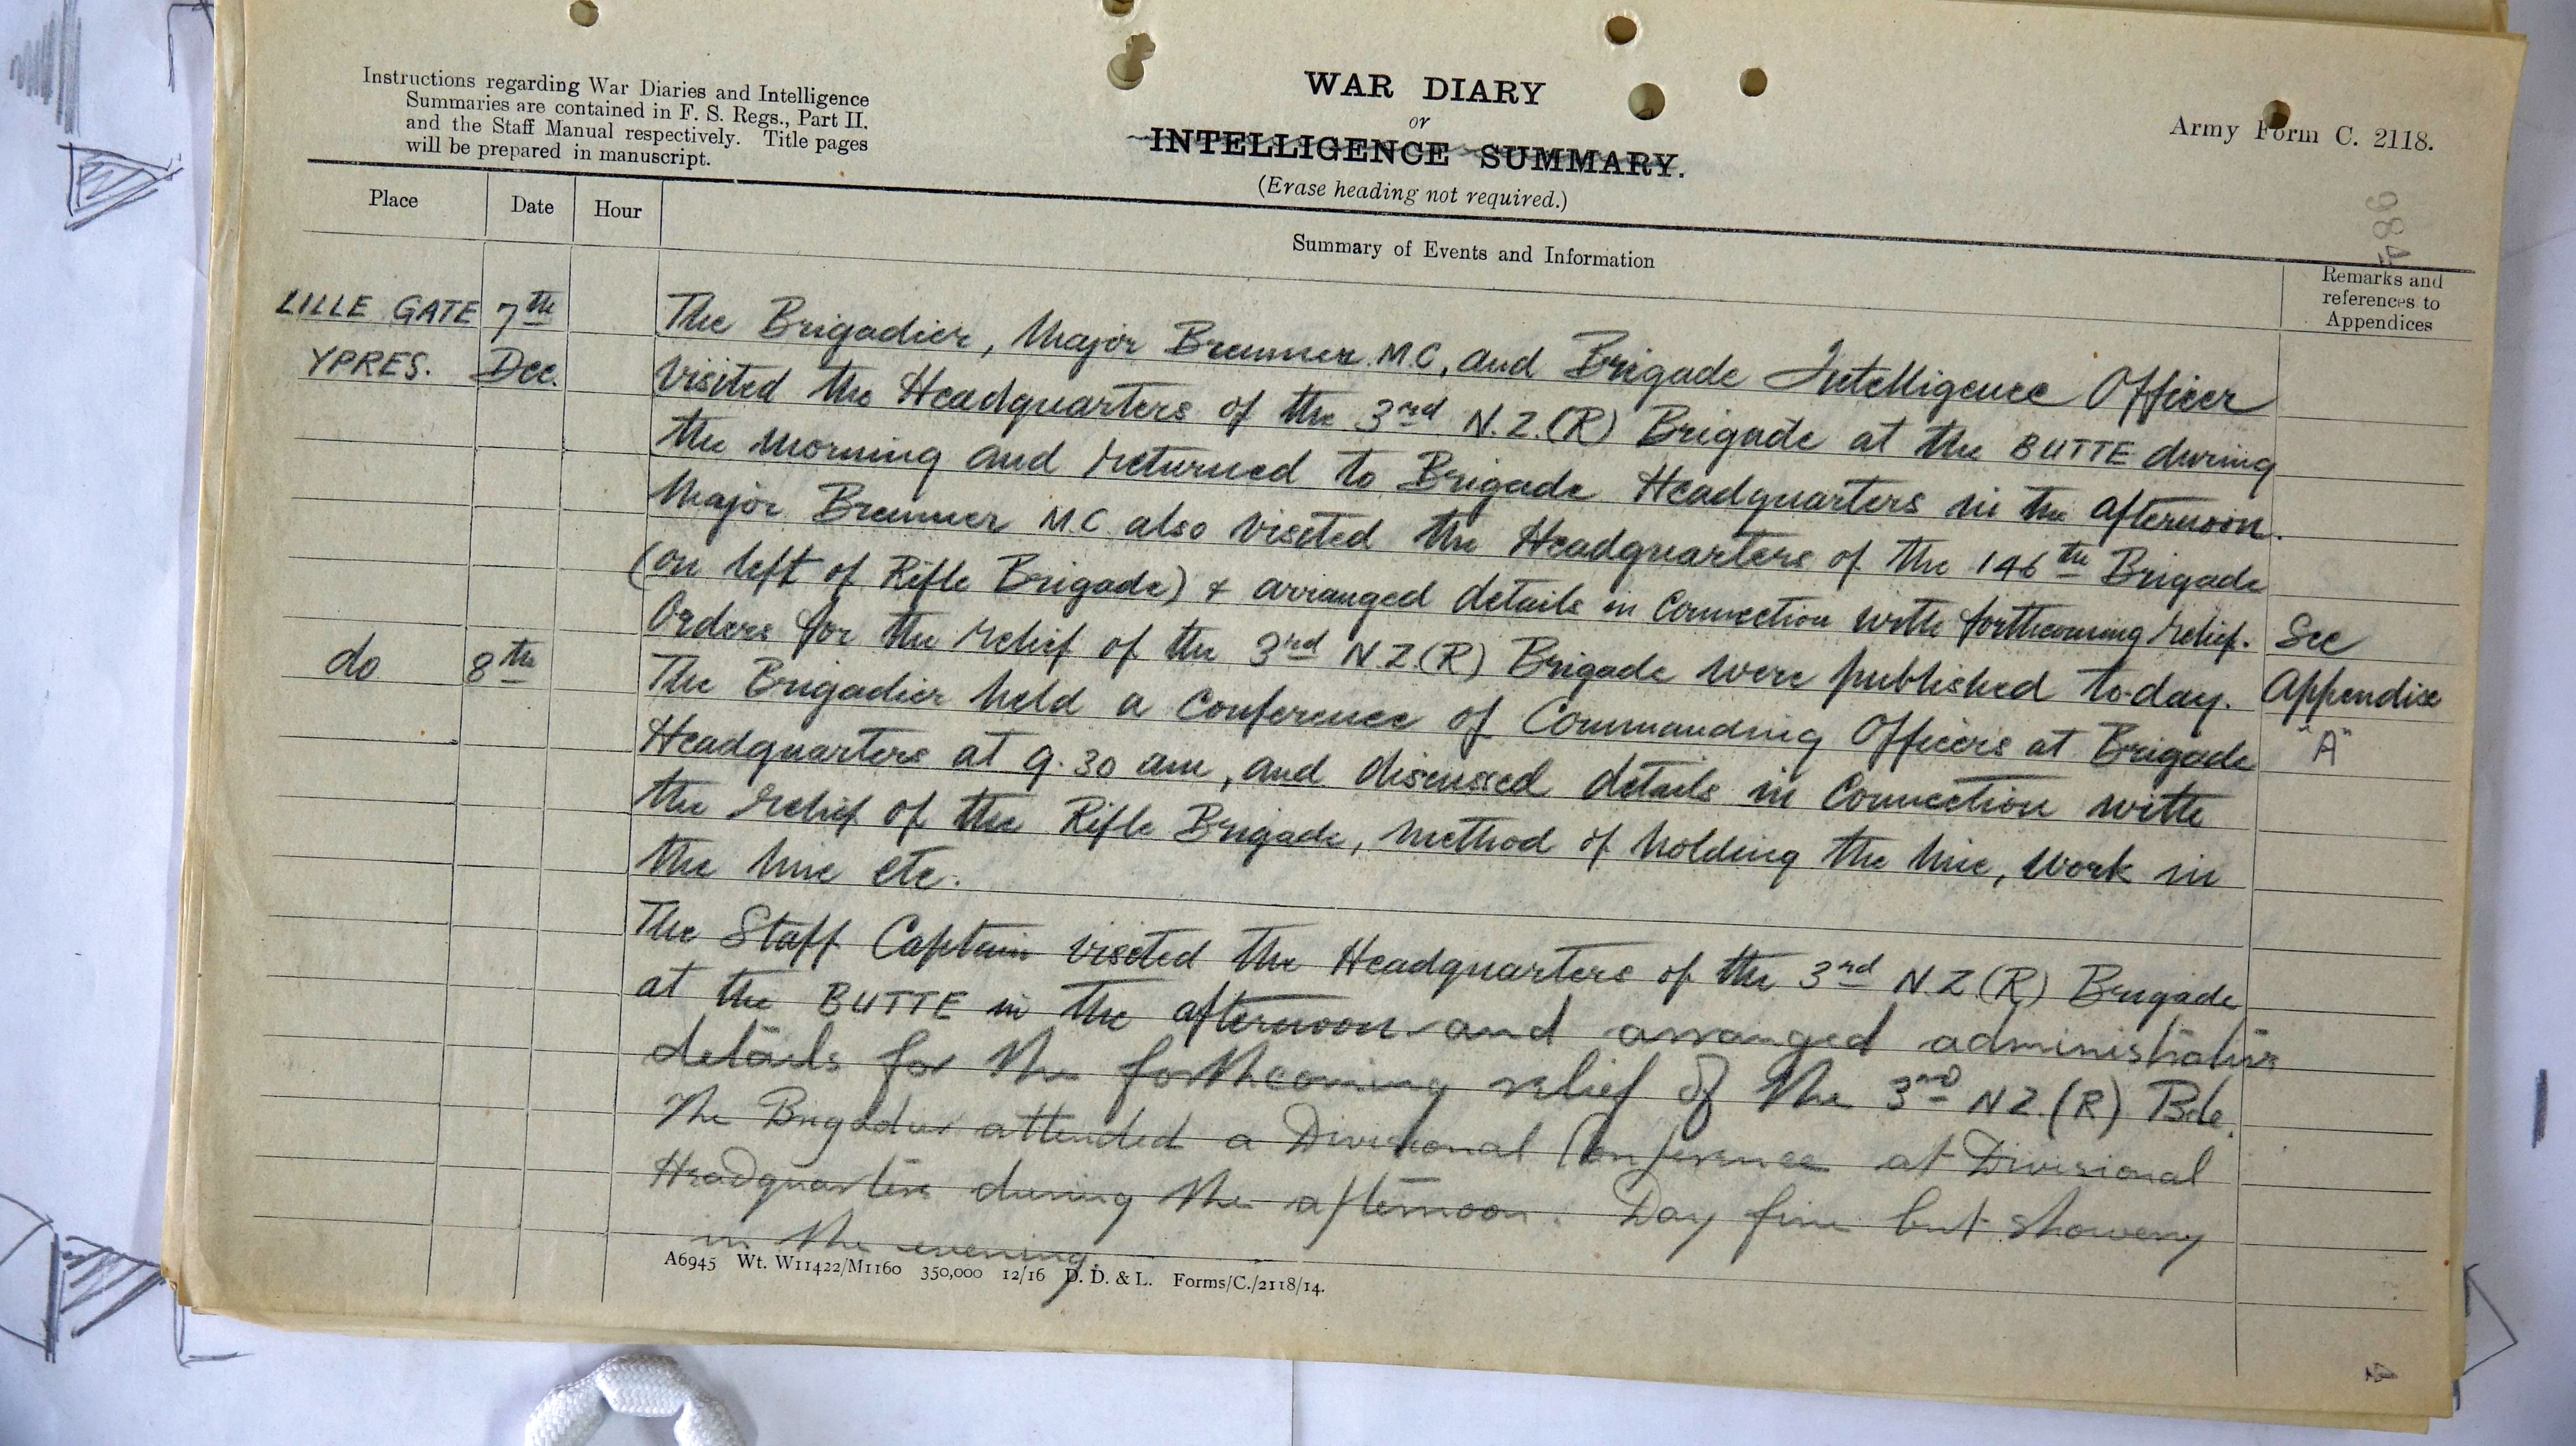 Instructions regarding War Diaries and Intelligence
Summaries are contained in F. S. Regs., Part II.
and the Staff Manual respectively. Title pages
will be prepared in manuscript.
WAR DIARY
or
INTELLIGENCE SUMMARY.
(Erase heading not required.)
Army Form C. 2118.
Place
Date
Hour
Summary of Events and Information
Remarks and
references to
Appendices
LILLE GATE
YPRES.
7th
Dec.
The Brigadier, Major Bremner M.C, and Brigade Intelligence Officer
visited the Headquarters of the 3rd N.Z.(R) Brigade at the BUTTE during
the morning and returned to Brigade Headquarters in the afternoon.
Major Bremner M.C. also visited the Headquarters of the 146th Brigade
(on left of Rifle Brigade) & arranged details in connection with forthcoming relief.
Orders for the relief of the 3rd N.Z.(R) Brigade were published to-day.
See
Appendice
"A"
do
8th
The Brigadier held a Conference of Commanding Officers at Brigade
Headquarters at 9.30 am, and discussed details in connection with
the relief of the Rifle Brigade, method of holding the line, work in
the line etc.
The Staff Captain visited the Headquarters of the 3rd N.Z.(R) Brigade
at the BUTTE in the afternoon and arranged administrative
details for the forthcoming relief of the 3rd NZ.(R) Bde.
The Brigadier attended a Divisional Conference at Divisional
Headquarters during the afternoon. Day fine but showery
in the evening.
A6945 Wt. W11422/M1160 350,000 12/16 D. D. & L. Forms/C./2118/14.